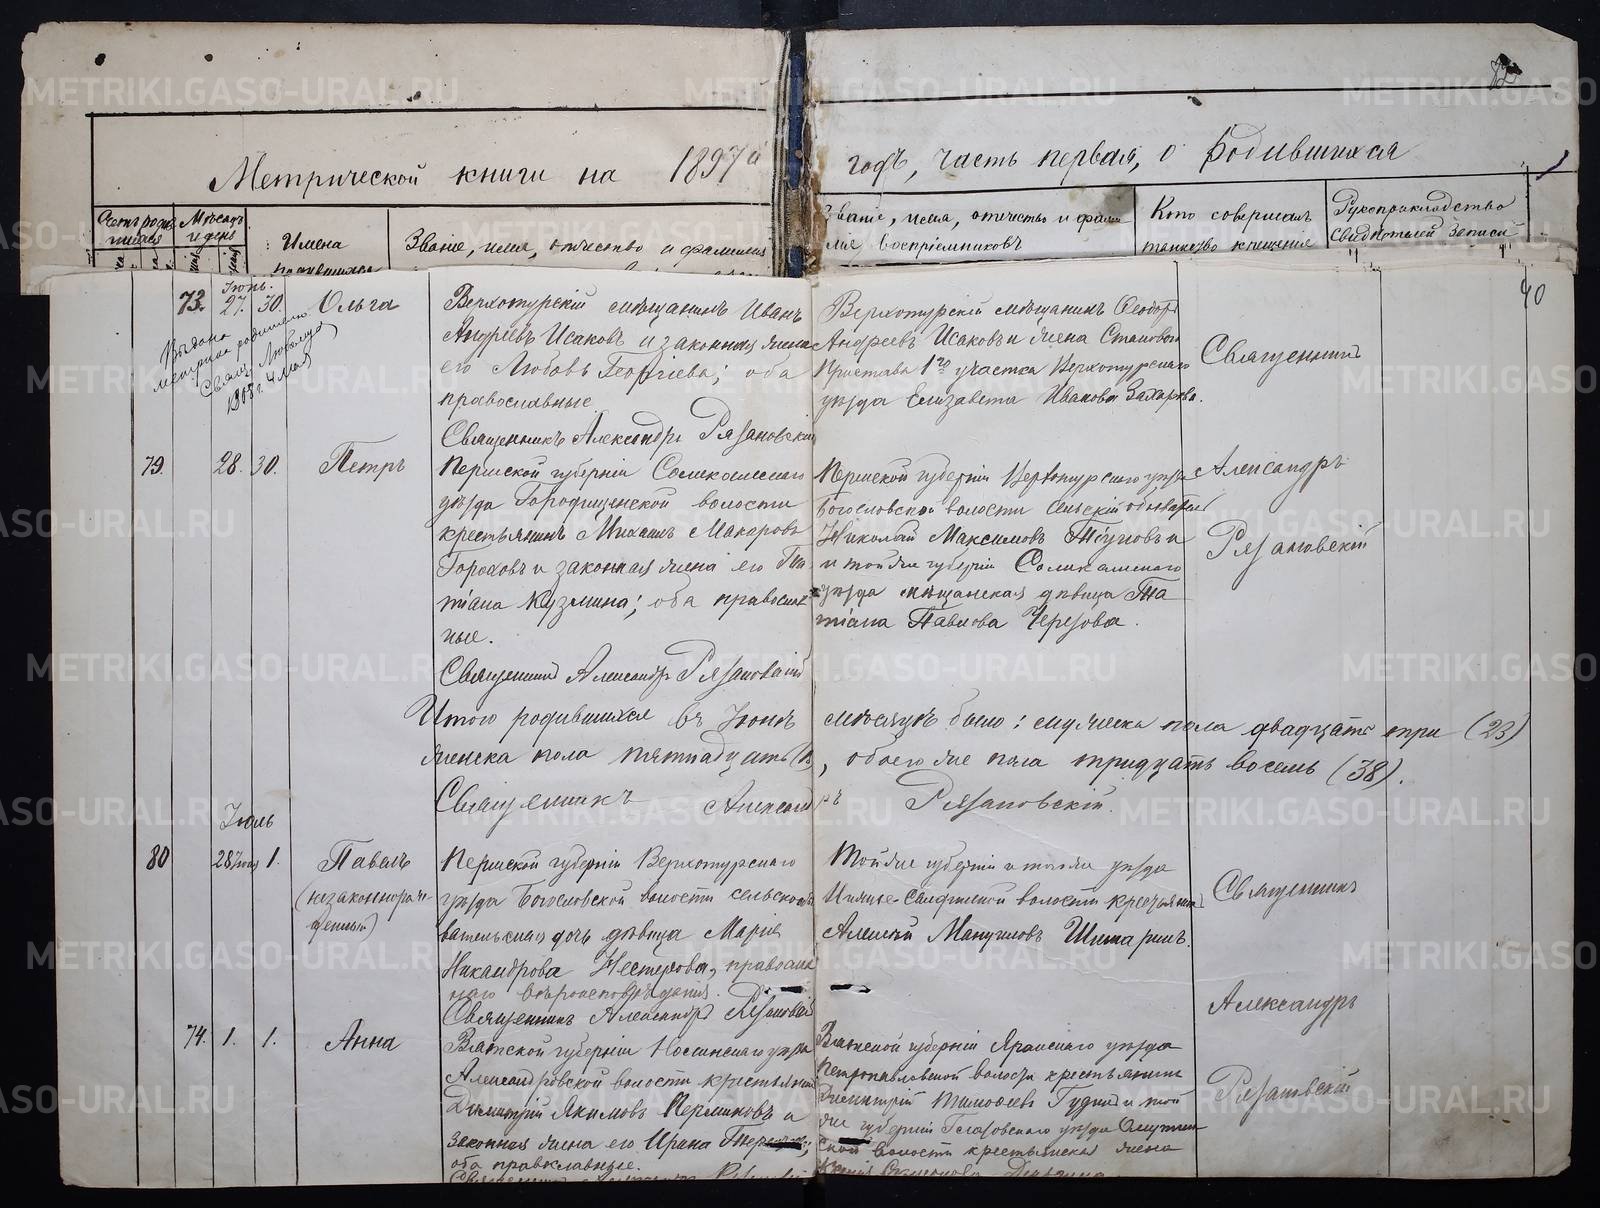 Метрической книги на 1897й годъ, часть первая, о родившихся
Мѣсяцъ и день
Имена
Званіе, имя, отчество и фамилія
Званіе, имя, отчество и фами
лія воспріемниковъ
Кто совершалъ
таинство крещенія
Рукоприкладство
свидѣтелей записи
40
Іюнь.
73. 27. 30. Ольга
Выдана
метрика родителю
Свящ. Любимовъ
1908 г. 4 мая
Верхотурскій мѣщанинъ Иванъ
Андреевъ Исаковъ и законная жена
его Любовь Георгіева; оба
православные.
Священникъ Александръ Рязановскій
Верхотурскій мѣщанинъ Ѳеодоръ
Андреевъ Исаковъ и жена Становаго
Пристава 1го участка Верхотурскаго
уѣзда Елизавета Иванова Захарова.
Священникъ
Александръ
Рязановскій
79. 28. 30. Петръ
Пермской губерніи Соликамскаго
уѣзда Городищенской волости
крестьянинъ Михаилъ Макаровъ
Гороховъ и законная жена его Та
тіана Кузмина; оба православ
ные.
Священникъ Александръ Рязановскій
Пермской губерніи Верхотурскаго уѣзда
Богословской волости сельскій обыватель
Николай Максимовъ и
и той же губерніи Соликамскаго
уѣзда мѣщанская дѣвица Та
тіана Павлова Черезова.
Итого родившихся въ Іюнѣ мѣсяцѣ было: мужеска пола двадцать три (23)
женска пола пятнадцать (15), обоего же пола тридцать восемь (38).
Священникъ Александръ Рязановскій.
Іюль
80 28 Іюня 1. Павелъ
(незаконнорож
денный)
Пермской губерніи Верхотурскаго
уѣзда Богословской волости сельскаго
вательская дочь дѣвица Марія
Никандрова Нестерова, православ
наго вѣроисповѣданія.
Священникъ Александръ Рязановскій
Той же губерніи и того же уѣзда
волости крестьянинъ
Алексѣй Мануиловъ
Священникъ
Александръ
Рязановскій
74. 1. 1. Анна
Вятской губерніи Нолинскаго уѣзда
Александровской волости крестьянинъ
Димитрій Якимовъ Перминовъ и
законная жена его Ирина
оба православные.
Вятской губерніи Яранскаго уѣзда
Петропавловской волости крестьянинъ
Димитрій Тимоѳеевъ и той
же губерніи Глазовскаго уѣзда
ской волости крестьянская жена
METRIKI.GASO-URAL.RU